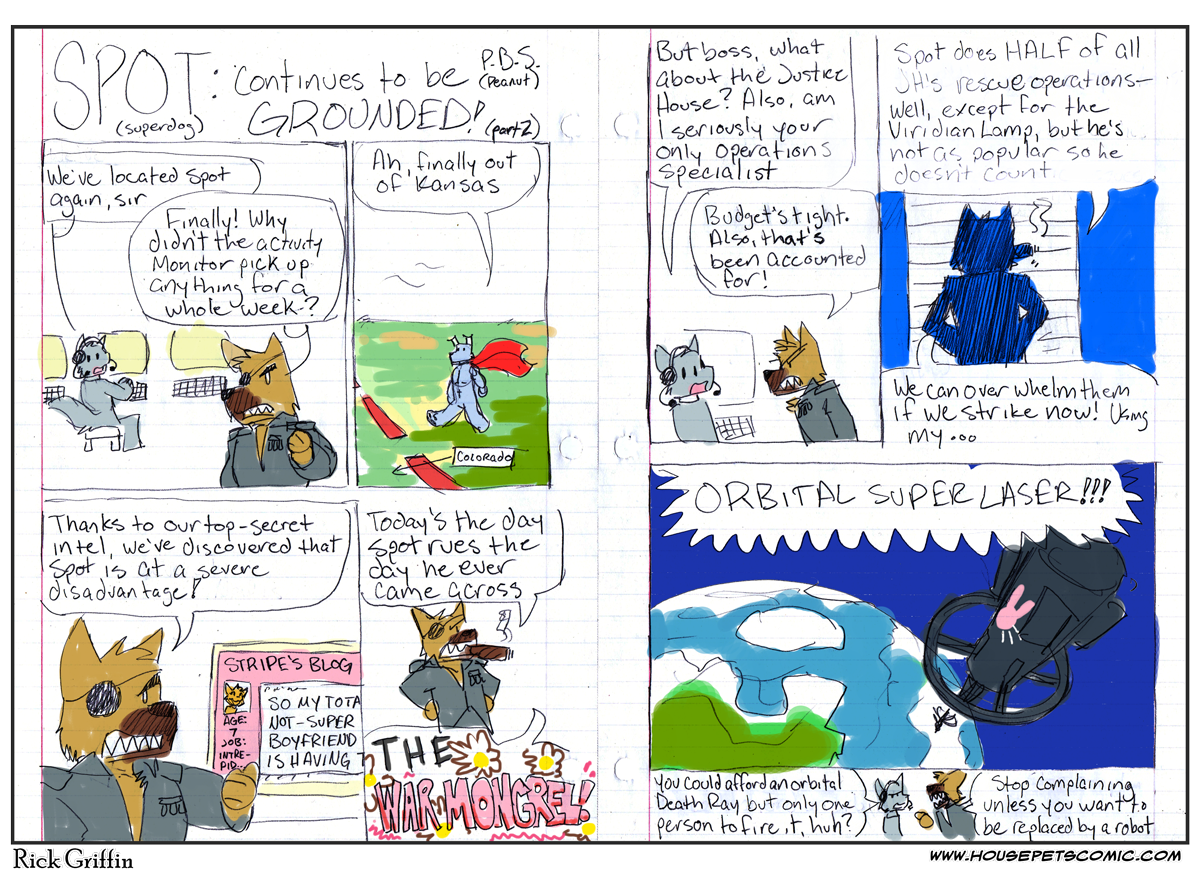 SPOT:
(superdog)
continues to be
GROUNDED!
P.B.S.
(Peanut)
(part 2)
We've located Spot
again, sir
Finally! Why
didn't the activity
Monitor pick up
anything for a
whole week?
Ah, finally out
of Kansas
COLORADO
Thanks to our top-secret
intel, we've discovered that
Spot is at a severe
disadvantage!
STRIPE'S BLOG
AGE:
7
JOB:
INTRE-
PID
SO MY TOTA
NOT-SUPER
BOYFRIEND
IS HAVING T
Today's the day
Spot rues the
day he ever
came across
THE
WAR MONGREL!
But boss, what
about the Justice
House? Also, am
I seriously your
only operations
specialist
Budget's tight.
Also, that's
been accounted
for!
Spot does HALF of all
JH's rescue operations—
Well, except for the
Viridian Lamp, but he's
not as popular so he
doesn't count
We can over whelm them
if we strike now! Using
my...
ORBITAL SUPER LASER!!!
You could afford an orbital
Death Ray but only one
person to fire it, huh?
Stop complaining
unless you want to
be replaced by a robot
Rick Griffin
WWW.HOUSEPETSCOMIC.COM